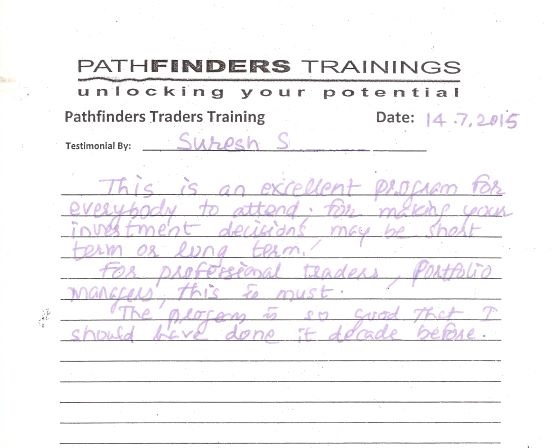 PATHFINDERS TRAININGS
unlocking your potential
Pathfinders Traders Training Date: 14.7.2015
Testimonial By: Suresh S
This is an excellent program for
everybody to attend. for making your
investment decisions may be short
term or long term.
For professional traders, Portfolio
managers, this is must.
The program is so good that I
should have done it decade before.